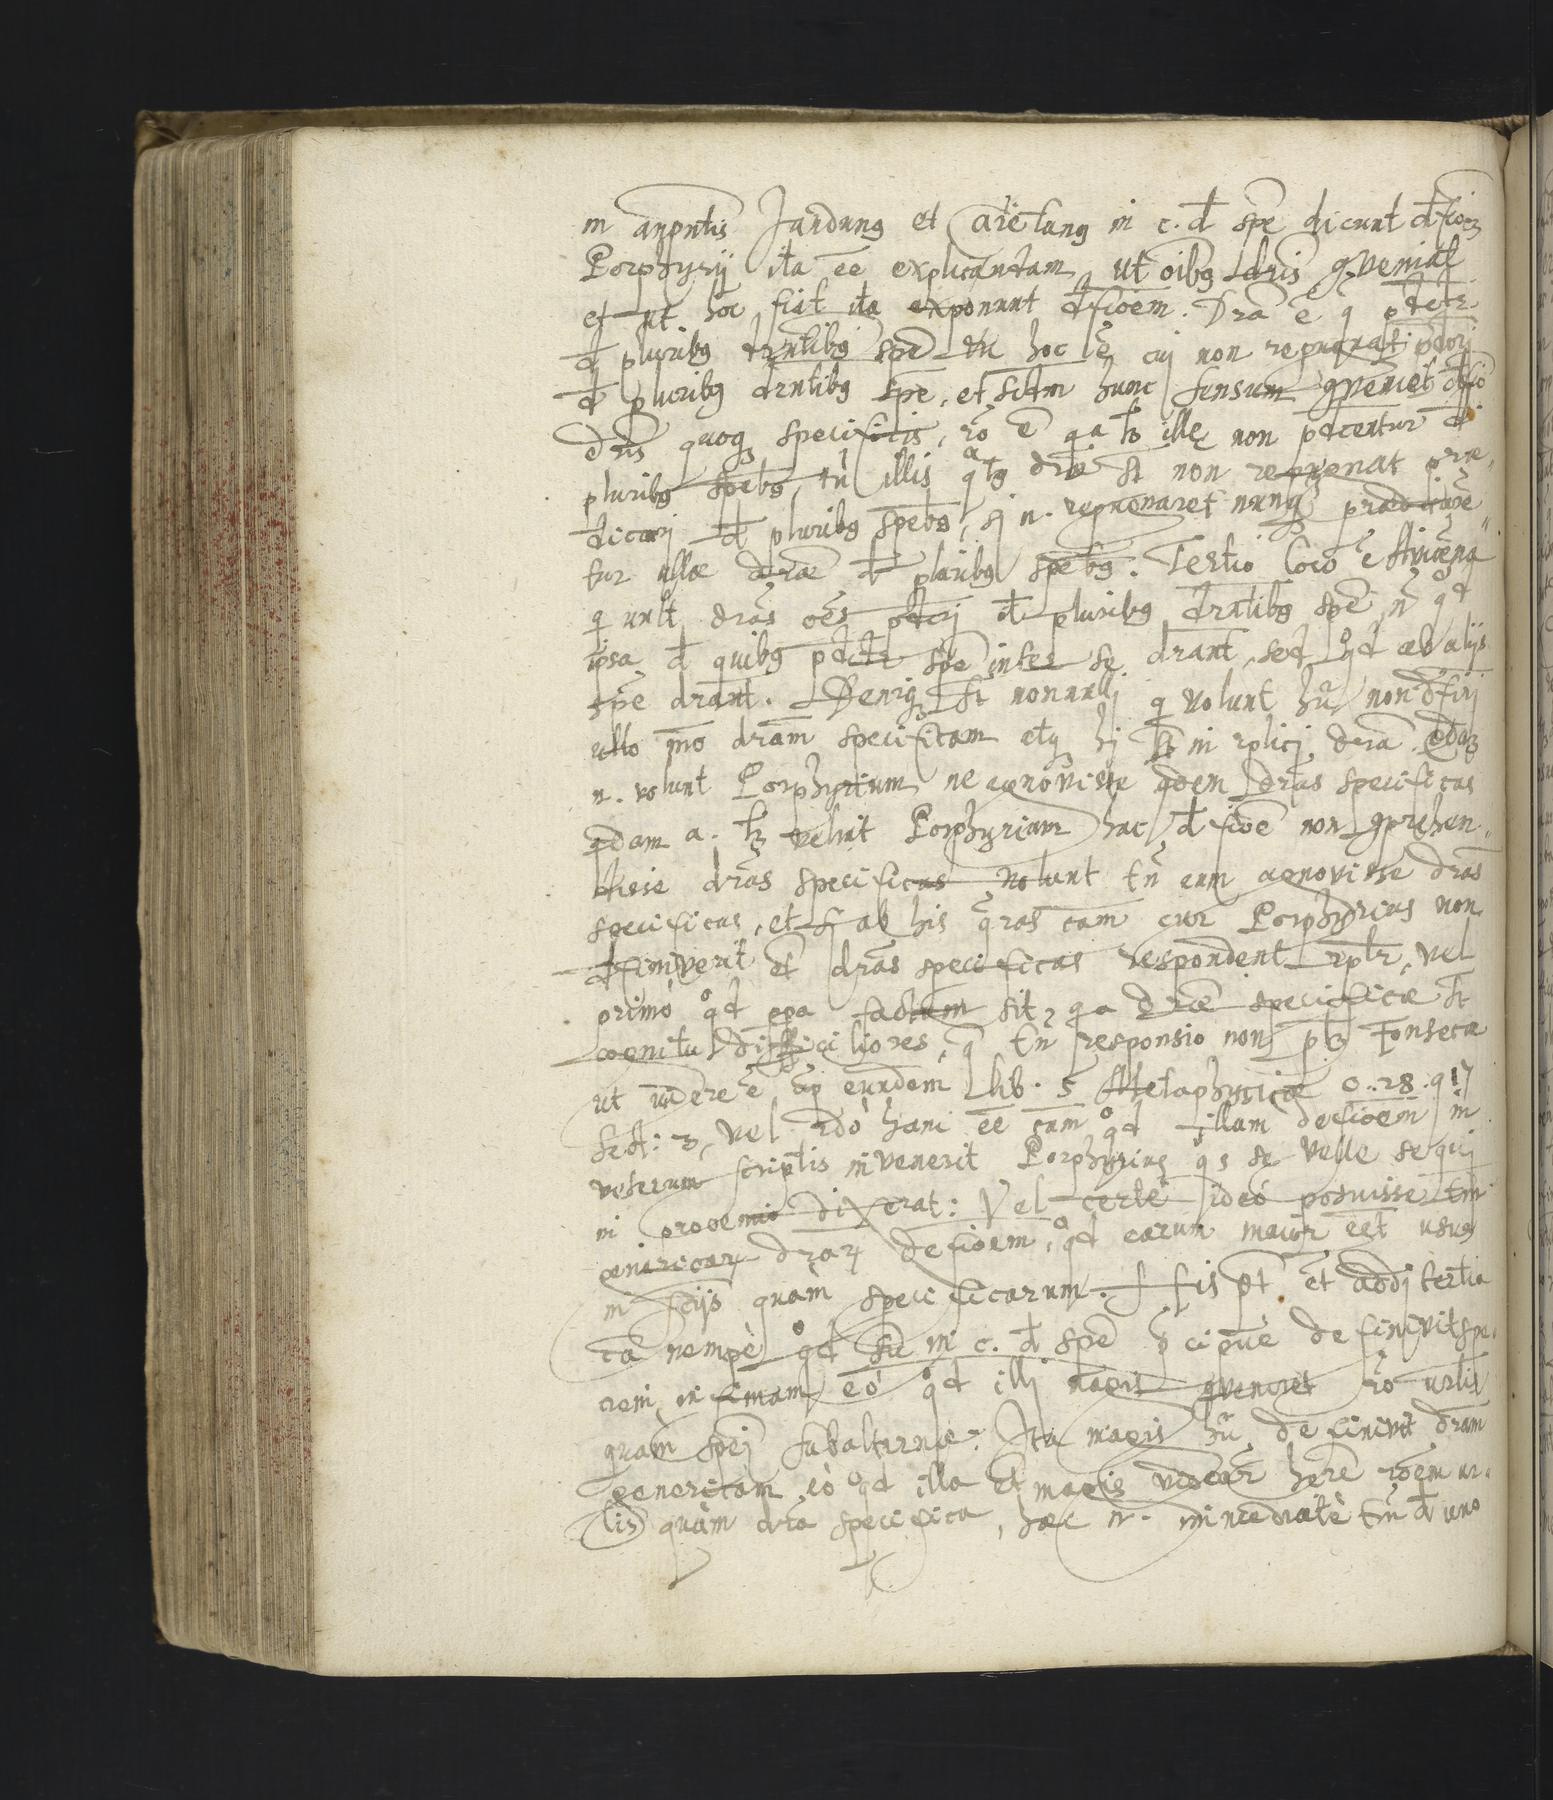 in anpntis Jandung et Caietang in c. d spe dicunt dfioēz
Porphyrij ita eē explicandam, ut oibg dris gveniat
et ut hoc fiat ita exponunt dfioem. Dra ē q pdctr
d pluribg drntibg spe tn hoc ē cuj non repugnat pdcrj
d pluribg drntibg spe, et sctm hunc sensum gveniet dfio
dris quoqz specificis, ro ē qa lz illę non pdcentur d
pluribg spebg, tn illis qtg dræ st non repugnat præ„
dicarj d pluribg spebg, sj n. repugnaret nunqz prædicare„
tur ullæ dræ d pluribg spebg. Tertio loco ē Avicena
q vult dras oēs pdcrj d pluribg drntibg spe n qd
ipsa d quibg pdctr spe inter se drant, sed qd ab alijs
spe drant. Deniqz st nonnullj q volunt hic non dfirj
ullo mo dram specificam atqz hj st in rplicj dra. Qdaz
n. volunt Porphyrium ne agnovisse qdem dras specificas
qdam a. lz velint Porphyrium hac dfioē non gprehen„
disse dras specificas volunt tn eum agnovisse dras
specificas, et si ab his qras cam cur Porphyrius non
dfiniverit et dras specificas respondent rplr, vel
primò qd ppa factum sit, qa dræ specificæ st
cognitu difficiliores, q tn responsio non plz Fonsecæ
ut videre ē ap eundem lib. 5 Metaphysicæ c. 28. q 17
sect: 3, vel 2dò hanc eē cam qd illam defioem in
veterum scriptis invenerit Porphyrius qs se velle sequj
in prooemio dixerat: Vel certè ideò posuisse tm
genericar drar defioem, qd earum maior eēt usus
in scijs quàm specificarum. His pt et addj tertia
ca nempè qd sic in c. d spe pcipuè definivit spe„
ciem infimam eò qd illj magis gveniret ro urlis
quàm spej subalternæ: Ita magis hic definivit dram
genericam eò qd illa et magis videatr hre roem ur„
lis quàm dra specifica, hæc n. immediatè tm d uno